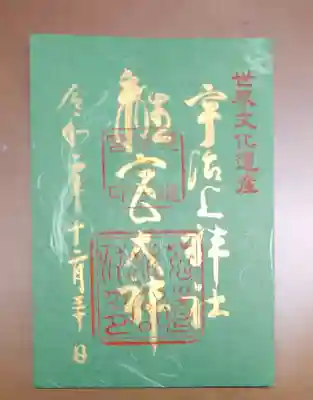 世界文化遺産
宇治上神社
離宮大神
令和二年十一月三十日